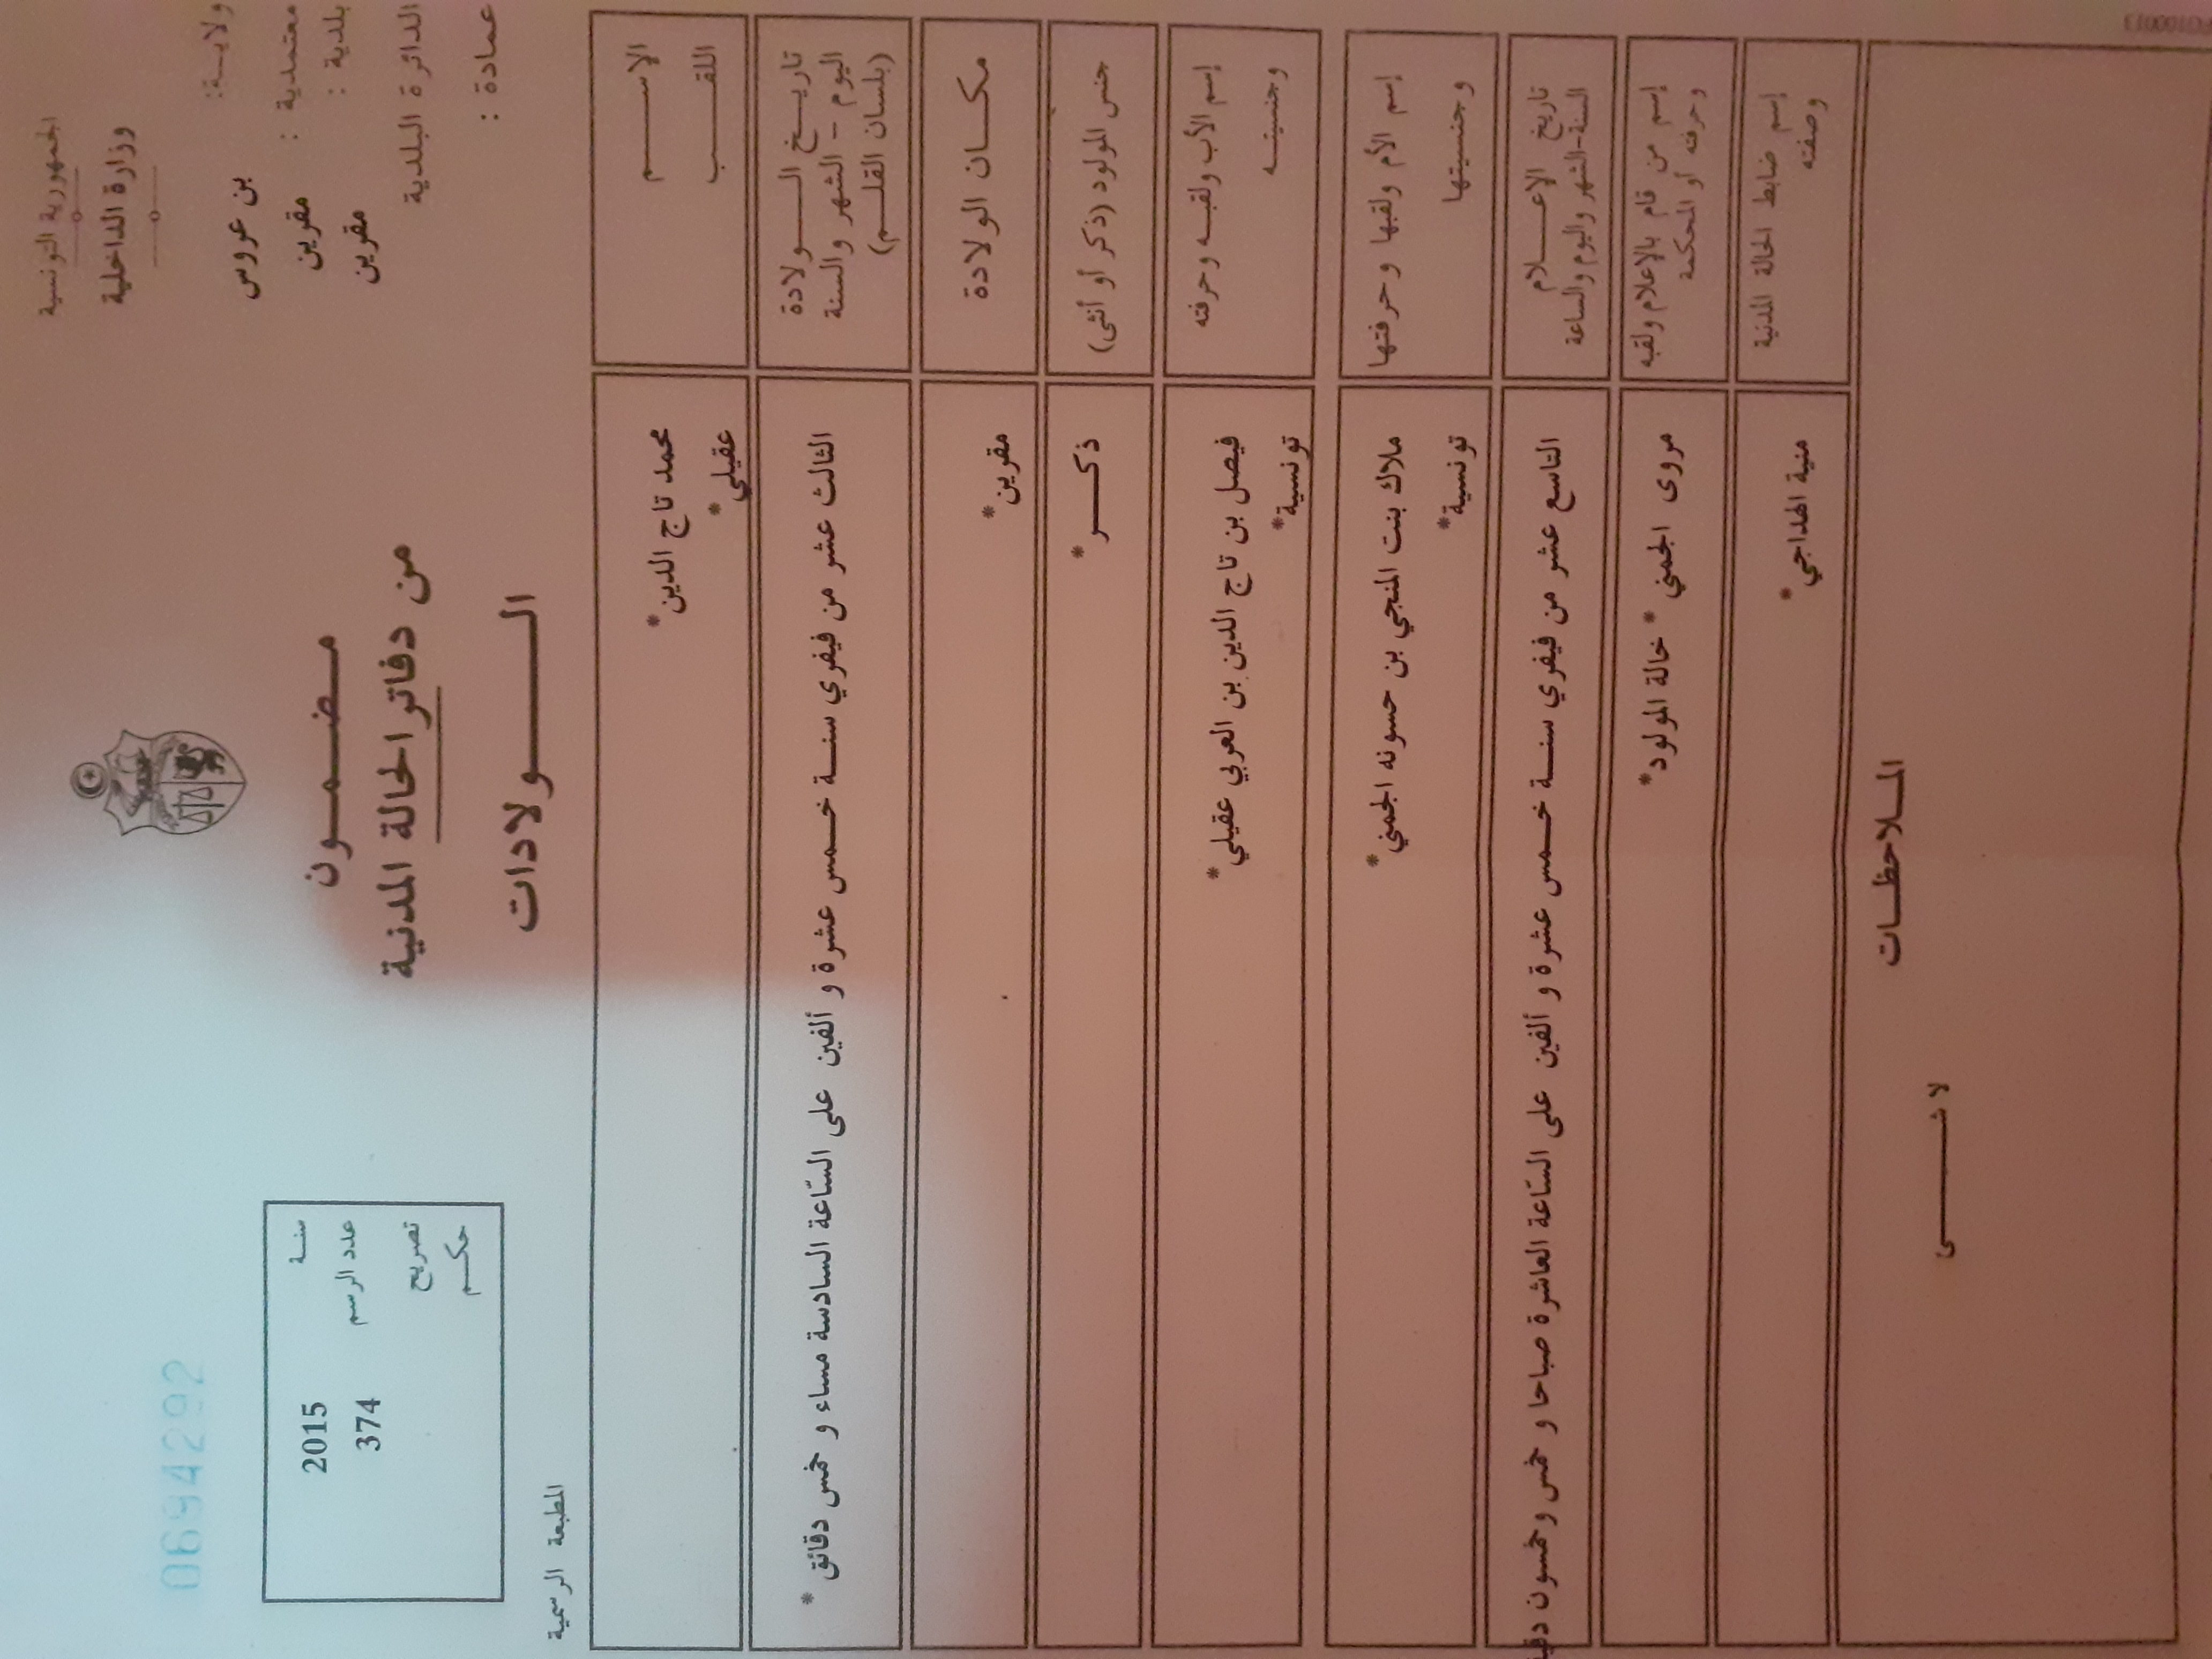 الجمهورية التونسية
وزارة الداخلية
ولايـــة: بن عروس
معتمدية : مقرين
بلدية : مقرين
الدائرة البلدية
عمادة :
06942 92
مضـمـون
من دفاتر الحالة المدنية
الـــولادات
سنـة 2015
عدد الرسم 374
تصريح
حكـم
المطبعة الرسمية
الإســـم محمد تاج الدين*
اللقـــب عقيلي*
تاريــخ الـــولادة
اليوم – الشهر والسنة
(بلسان القلـم)
الثالث عشر من فيفري سنـة خـمس عشرة و ألفين على السّاعة السادسة مساء و خمس دقائق *
مكــان الولادة مقرين*
جنس المولود (ذكر أو أنثى) ذكـــر*
إسم الأب ولقبـه وحرفته فيصل بن تاج الدين بن العربي عقيلي*
وجنسيتــه تونسية*
إسم الأم ولقبها وحرفتها ملاك بنت المنجي بن حسونه الجمني*
وجنسيتها تونسية*
تاريخ الإعـــلام
السنة-الشهر واليوم والساعة
التاسع عشر من فيفري سنـة خـمس عشرة و ألفين على السّاعة العاشرة صباحا و خمس وخمسون
إسم من قام بالإعلام ولقبه
وحرفته أو المحكمة
مروى الجمني * خالة المولود*
إسم ضابط الحالة المدنية
وصفته
منية الهداجي *
المـلاحظـات
لا شـــــى